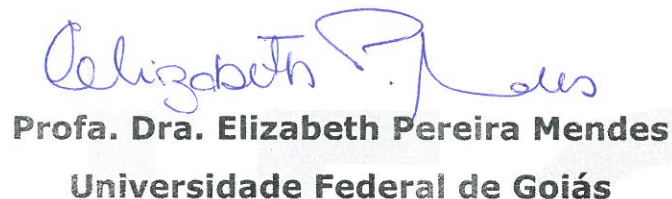 Elizabeth P. Mendes
Profa. Dra. Elizabeth Pereira Mendes
Universidade Federal de Goiás